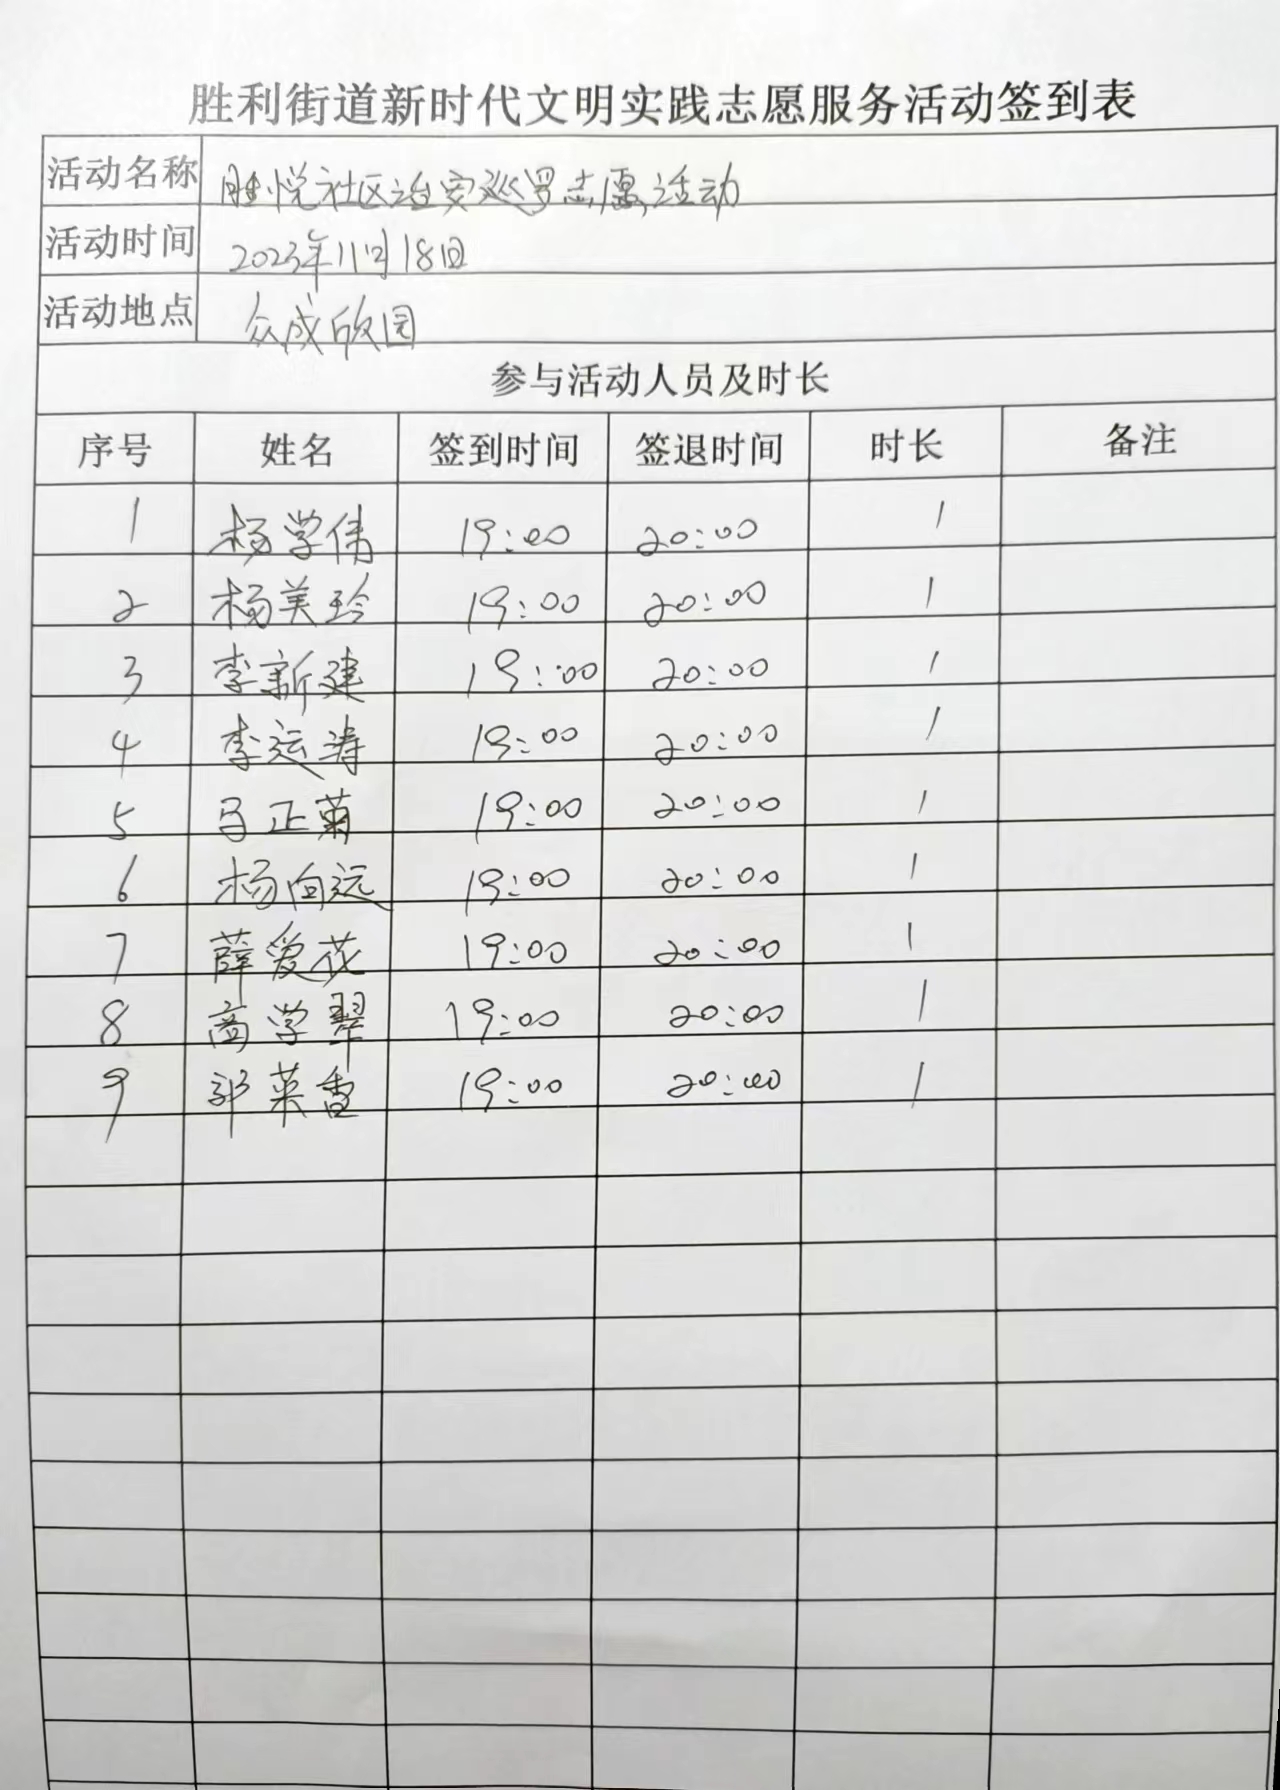 胜利街道新时代文明实践志愿服务活动签到表
活动名称 胜悦社区治安巡罗志愿活动
活动时间 2023年11月18日
活动地点 众成欣园
参与活动人员及时长
序号 姓名 签到时间 签退时间 时长 备注
1 杨学伟 19:00 20:00 1
2 杨美玲 19:00 20:00 1
3 李新建 19:00 20:00 1
4 李运涛 19:00 20:00 1
5 马正菊 19:00 20:00 1
6 杨向远 19:00 20:00 1
7 薛爱花 19:00 20:00 1
8 商学翠 19:00 20:00 1
9 郭菜香 19:00 20:00 1